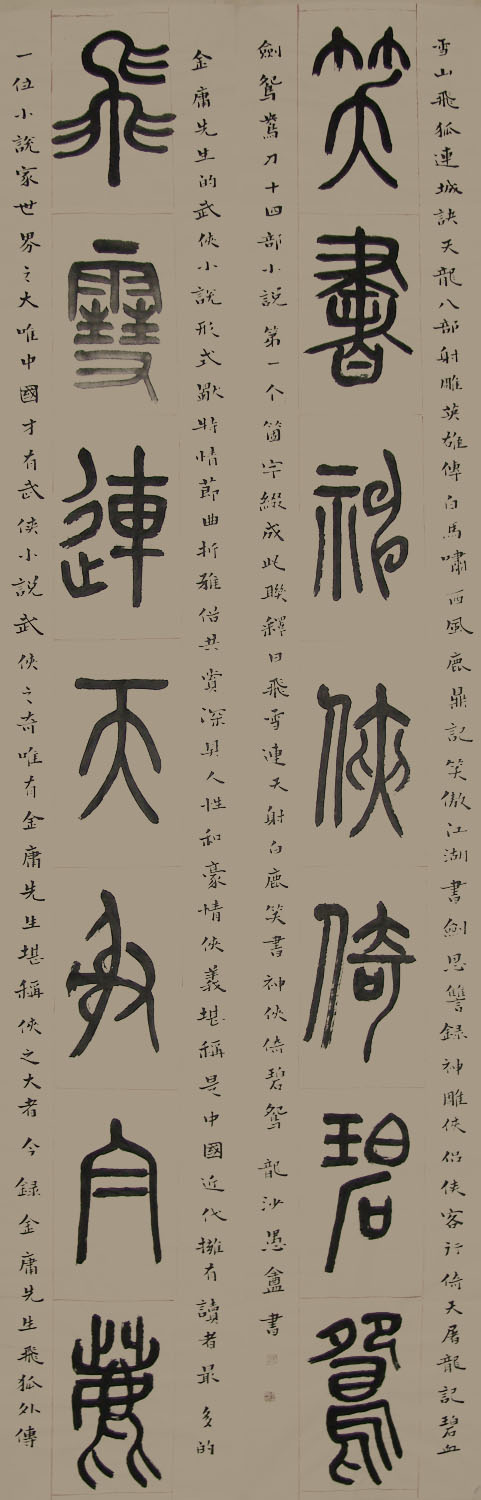 金庸先生的武俠小說形式獨特情節曲折雅俗共賞深具人性和豪情俠義堪稱是中國近代擁有讀者最多的
飛雪連天射白鹿
一位小說家世界之大唯中國才有武俠小說武俠之奇唯有金庸先生堪稱俠之大者今錄金庸先生飛狐外傳
雪山飛狐連城訣天龍八部射雕英雄傳白馬嘯西風鹿鼎記笑傲江湖書劍恩讐錄神雕俠侶俠客行倚天屠龍記碧血
笑書神俠倚碧鴛
劍鴛鴦刀十四部小說第一个箇字綴成此聯釋曰飛雪連天射白鹿笑書神俠倚碧鴛 龍沙愚盦書